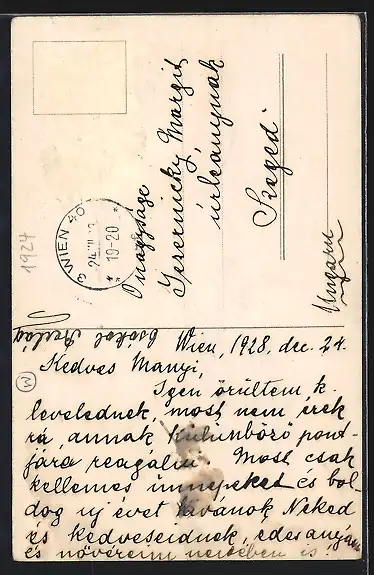 1924
3 WIEN 40
* 19-20 *
Őnagysága
Jezernicky Margit
úrleánynak
Szeged
Ungarn
Wien, 1928. dec. 24.
Kedves Manyi,
Igen örültem k.
levelednek, most nem érek
rá, annak különböző pont-
jára reagálni. Most csak
kellemes ünnepeket és bol-
dog uj évet kívánok Neked
és kedveseidnek, édesanyám
és nővéreim nevében is!
csókol
W